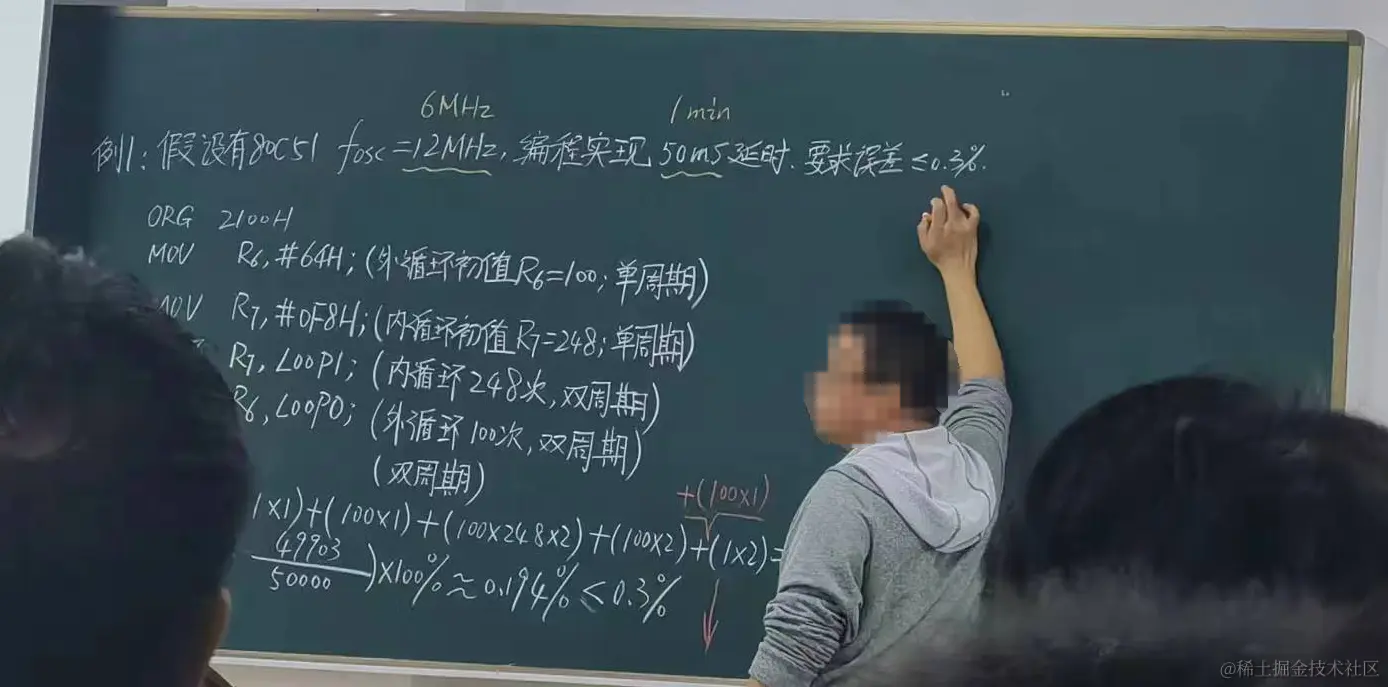 6MHz 1min
例1：假设有80C51 fosc=12MHz,编程实现50mS延时.要求误差≤0.3%.
ORG 2100H
MOV R6,#64H;(外循环初值R6=100;单周期)
MOV R7,#0F8H;(内循环初值R7=248;单周期)
R7,LOOP1;(内循环248次,双周期)
R6,LOOP0;(外循环100次,双周期)
(双周期)
+(100×1)
1×1)+(100×1)+(100×248×2)+(100×2)+(1×2)=
49903
50000
)×100%≈0.194%≤0.3%
@稀土掘金技术社区